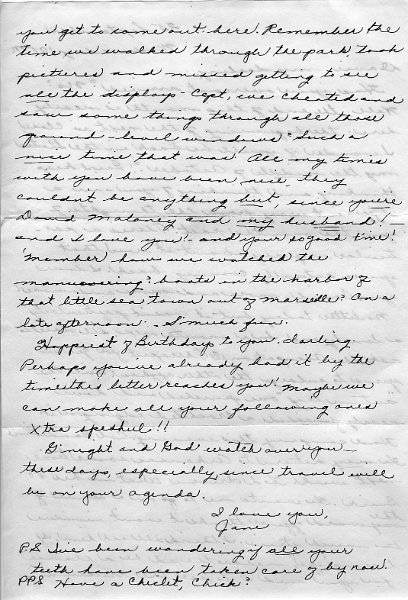 you get to come out here. Remember the
time we walked through the park, took
pictures and missed getting to see
all the displays - 'cept, we cheated and
saw some things through all those
ground-level windows? Such a
nice time that was! All my times
with you have been nice, they
couldn't be anything but, since you're
David Maloney and my husband!
and I love you! - and your so good time!
'Member how we watched the
manuvering? boats in the harbor of
that little sea town out of Marseille? On a
late afternoon - S'much fun.
Happiest of Birthdays to you, darling.
Perhaps you've already had it by the
time this letter reaches you! Maybe we
can make all your following ones
Xtra speshul!!
G'night and God watch over you -
these days, especially, since travel will
be on your agenda.
I love you,
Jane
PS I've been wondering if all your
teeth have been taken care of by now.
PPS Have a Chiclet, Chick?